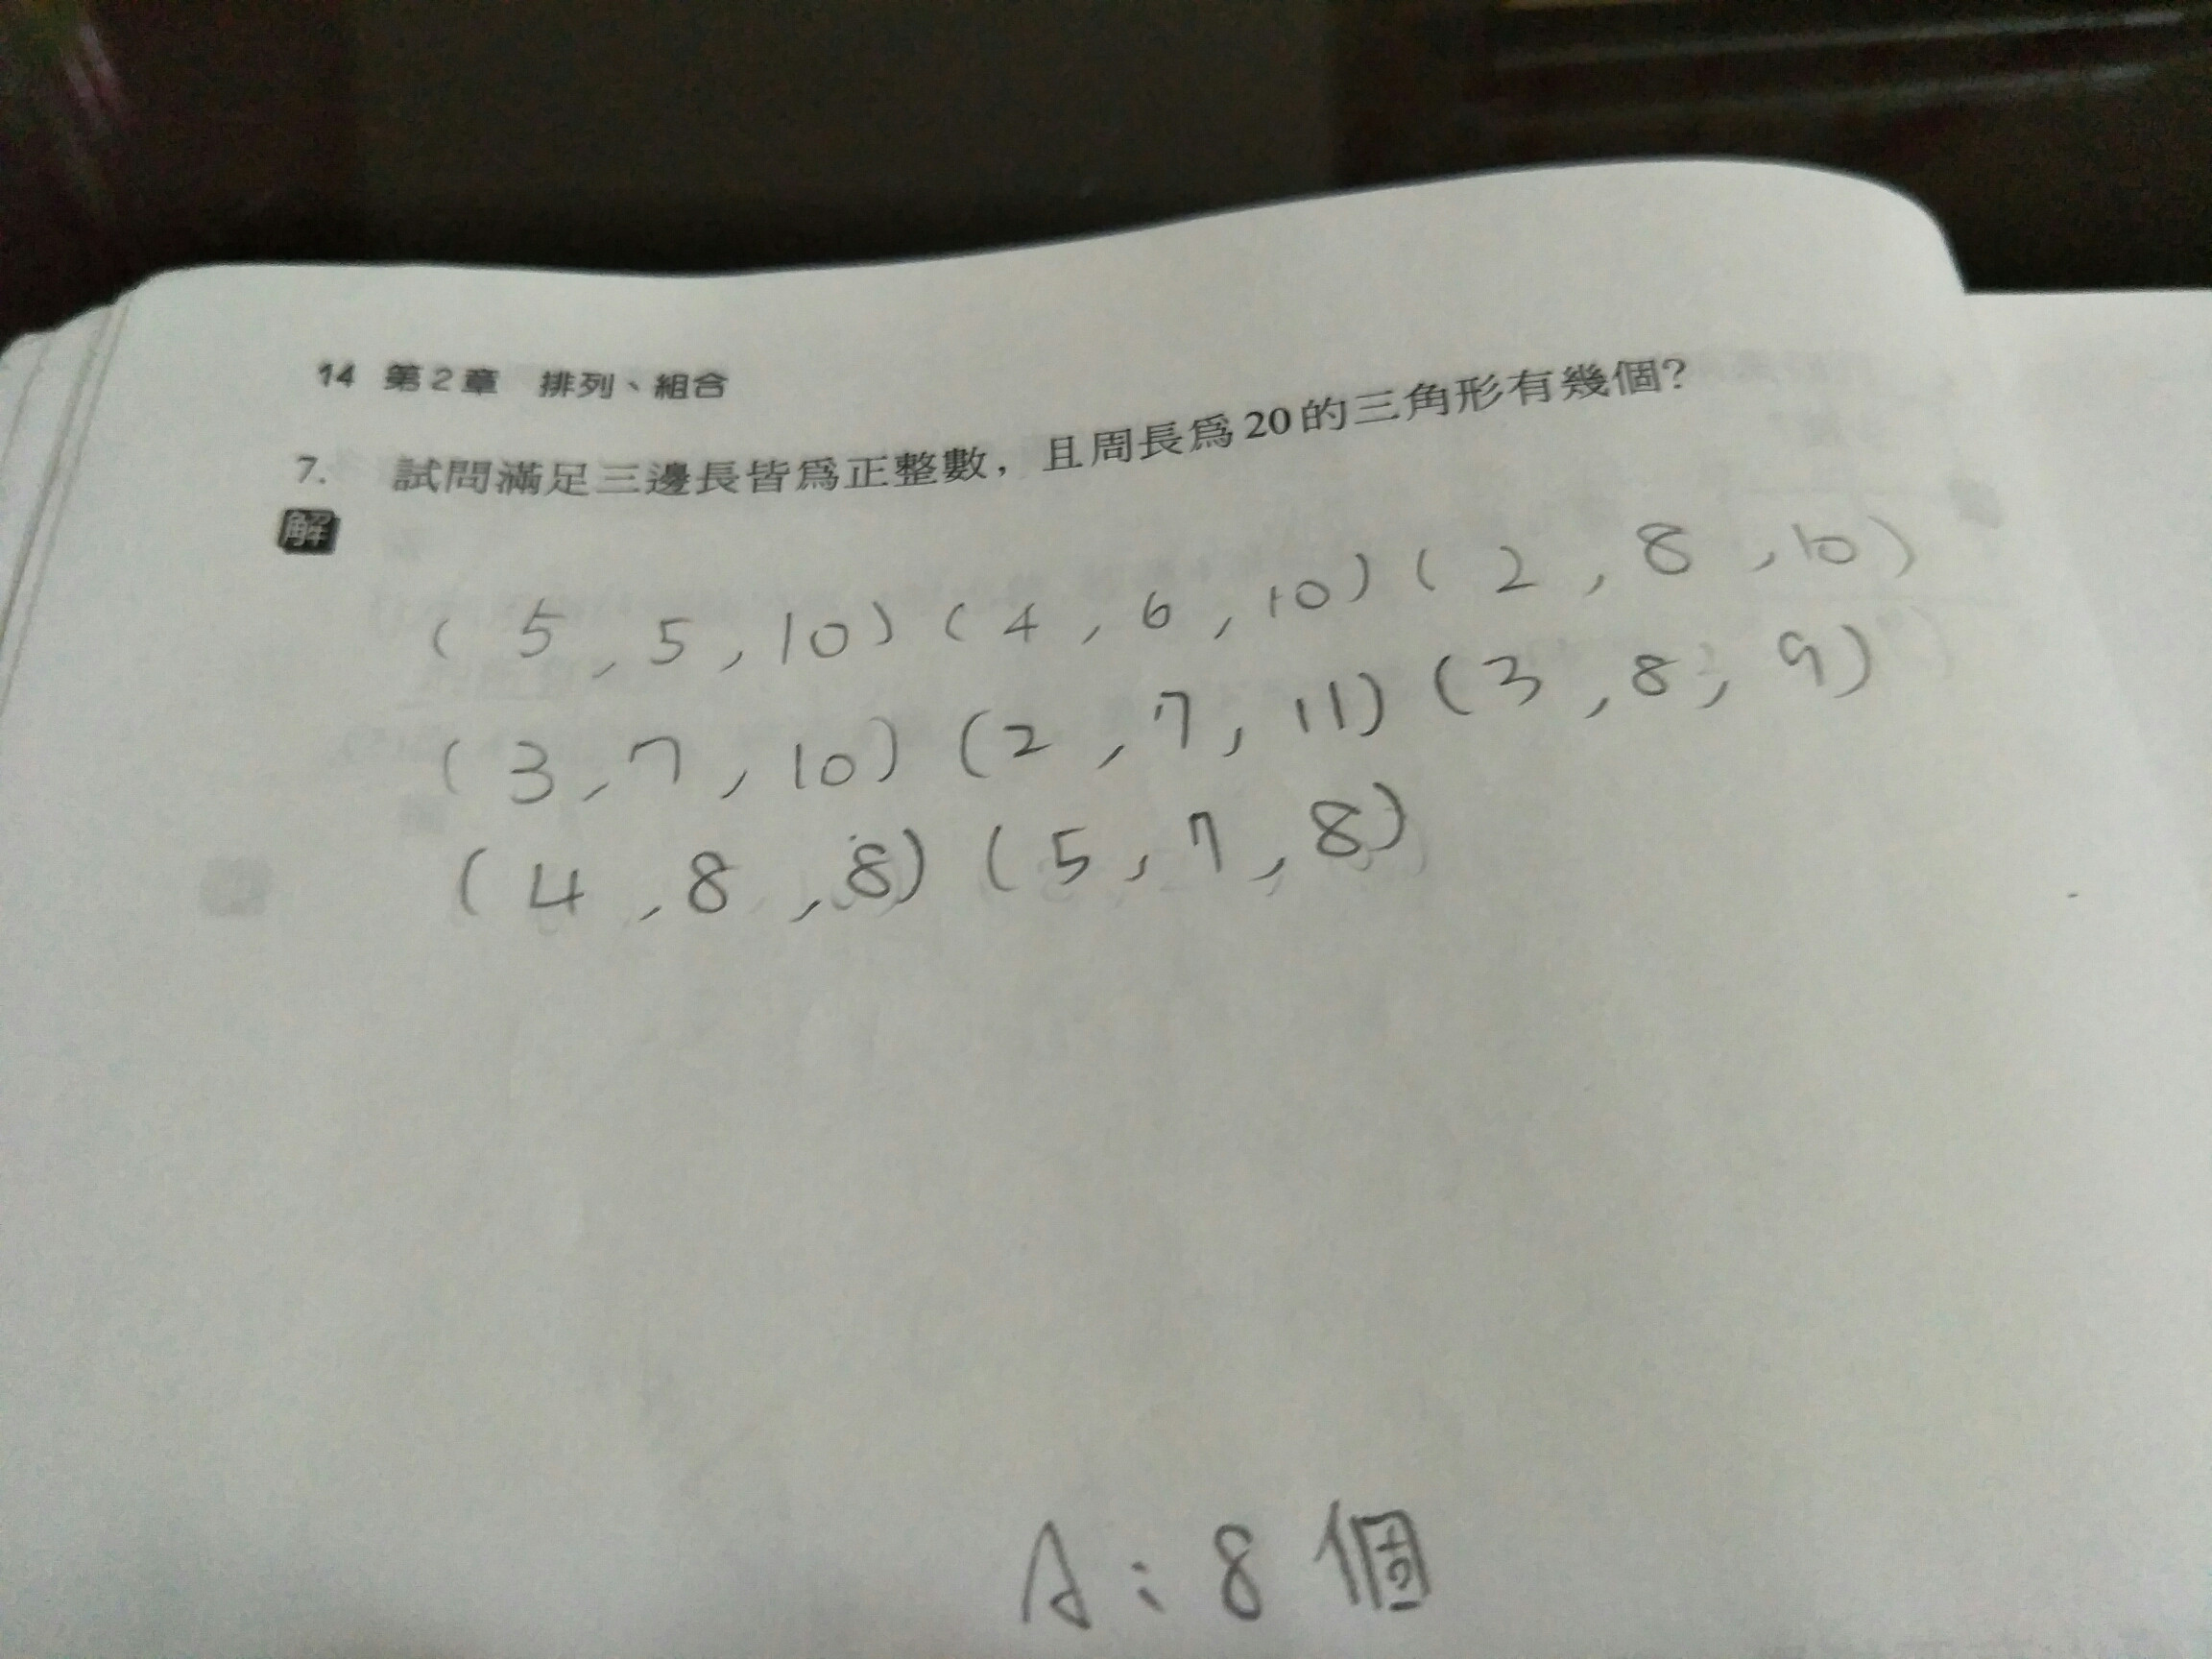 14 第2章 排列、組合
7. 試問滿足三邊長皆為正整數，且周長為20的三角形有幾個?
解
(5,5,10)(4,6,10)(2,8,10)
(3,7,10)(2,7,11)(3,8,9)
(4,8,8)(5,7,8)
A:8個